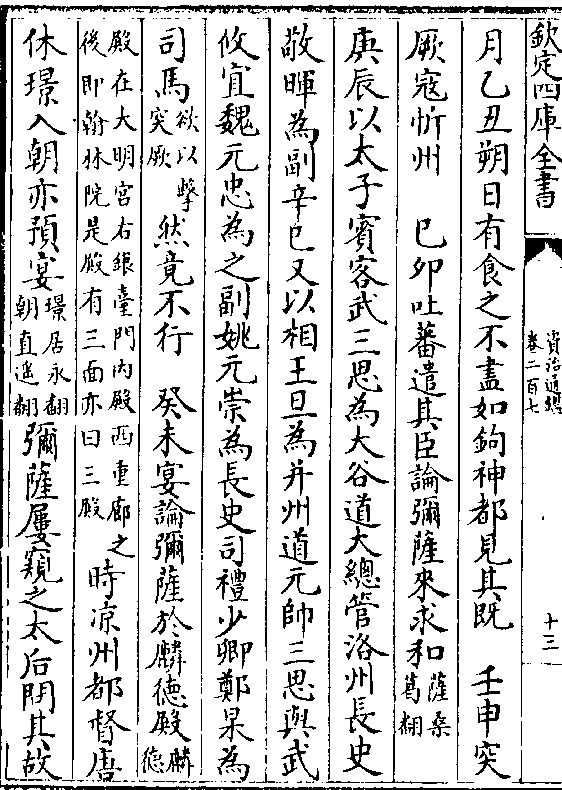 欽定四庫全書
資治通鑑
卷二百七
十三
月乙丑朔日有食之不盡如鉤神都見其既　壬申突
厥寇忻州　巳卯吐蕃遣其臣論彌薩來求和薩桑葛翻
庚辰以太子賓客武三思為大谷道大總管洛州長史
敬暉為副辛巳又以相王旦為并州道元帥三思與武
攸宜魏元忠為之副姚元崇為長史司禮少卿鄭杲為
司馬欲以擊突厥然竟不行　癸未宴論彌薩於麟德殿麟德
殿在大明宮右銀臺門內殿西重廊之後即翰林院是殿有三面亦曰三殿時涼州都督唐
休璟入朝亦預宴璟居永翻朝直遙翻彌薩屢窺之太后問其故